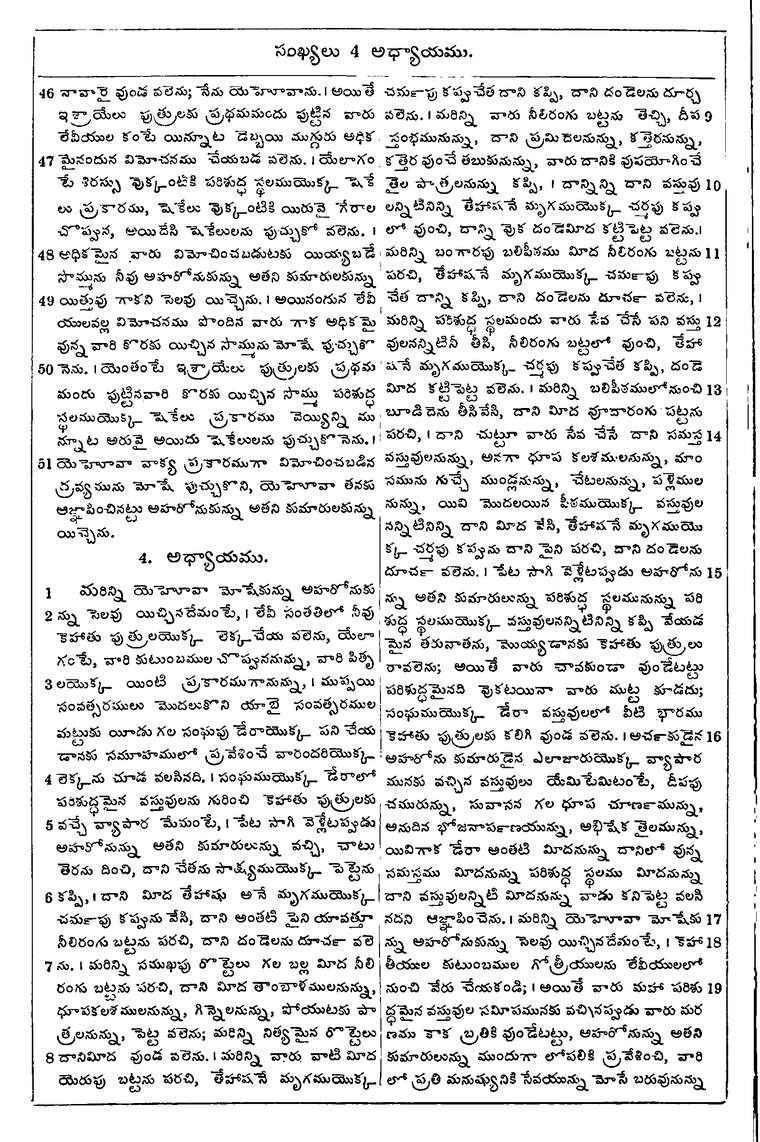 సంఖ్యలు 4 అధ్యాయము.
46 నావారై వుండ వలెను; నేను యెహోవాను. । అయితే
ఇశ్రాయేలు పుత్రులకు ప్రథమమందు పుట్టిన వారు
లేవీయుల కంటే యిన్నూట డెబ్బయి ముగ్గురు అధిక
47 మైనందున విమోచనము చేయబడ వలెను. । యేలాగం
టే శిరస్సు వొక్కంటికి పరిశుద్ధ స్థలముయొక్క షెకే
లు ప్రకారము, షెకేలు వొక్కంటికి యిరువై గేరాల
చొప్పున, అయిదేసి షెకేలులను పుచ్చుకో వలెను. ।
48 అధికమైన వారు విమోచించబడుటకు యియ్యబడే
సొమ్మును నీవు అహరోనుకున్ను అతని కుమారులకున్ను
49 యిత్తువు గాకని సెలవు యిచ్చెను. । అయినంగున లేవీ
యులవల్ల విమోచనము పొందిన వారు గాక అధికమై
వున్న వారి కొరకు యిచ్చిన సొమ్మును మోషే పుచ్చుకొ
50 నెను. । యెంతంటే ఇశ్రాయేలు పుత్రులకు ప్రథమ
మందు పుట్టినవారి కొరకు యిచ్చిన సొమ్ము పరిశుద్ధ
స్థలముయొక్క షెకేలు ప్రకారము వెయ్యిన్ని ము
న్నూట అరువై అయిదు షెకేలులను పుచ్చుకొనెను. ।
51 యెహోవా వాక్య ప్రకారముగా విమోచించబడిన
ద్రవ్యమును మోషే పుచ్చుకొని, యెహోవా తనకు
ఆజ్ఞాపించినట్టు అహరోనుకున్ను అతని కుమారులకున్ను
యిచ్చెను.
4. అధ్యాయము.
1 మరిన్ని యెహోవా మోషేకున్ను అహరోనుకు
2 న్ను సెలవు యిచ్చినదేమంటే, । లేవీ సంతతిలో నీవు
కెహాతు పుత్రులయొక్క లెక్కచేయ వలెను, యేలా
గంటే, వారి కుటుంబముల చొప్పుననున్ను, వారి పితృ
3 లయొక్క యింటి ప్రకారముగానున్ను, । ముప్పయి
సంవత్సరములు మొదలుకొని యాభై సంవత్సరముల
మట్టుకు యీడు గల సంఘపు డేరాయొక్క పని చేయ
డానకు సమూహములో ప్రవేశించే వారందరియొక్క
4 లెక్కను చూడ వలసినది. । సంఘముయొక్క డేరాలో
పరిశుద్ధమైన వస్తువులను గురించి కెహాతు పుత్రులకు
5 వచ్చే వ్యాపార మేమంటే, । పేట సాగి వెళ్లేటప్పుడు
అహరోనున్ను అతని కుమారులున్ను వచ్చి, చాటు
తెరను దించి, దాని చేతను సాక్ష్యముయొక్క పెట్టెను
6 కప్పి, । దాని మీద తేహాషు అనే మృగముయొక్క
చర్మపు కప్పును వేసి, దాని అంతటి పైని యావత్తూ
నీలిరంగు బట్టను పరచి, దాని దండెలను దూర్చ వలె
7 ను. । మరిన్ని సముఖపు రొట్టెలు గల బల్ల మీద నీలి
రంగు బట్టను పరచి, దాని మీద తాంబాళములనున్ను,
ధూపకలశములనున్ను, గిన్నెలనున్ను, పోయుటకు పా
త్రలనున్ను, పెట్ట వలెను; మరిన్ని నిత్యమైన రొట్టెలు
8 దానిమీద వుండ వలెను. । మరిన్ని వారు వాటి మీద
యెరుపు బట్టను పరచి, తేహాషనే మృగముయొక్క
చర్మపు కప్పుచేత దాని కప్పి, దాని దండెలను దూర్చ
వలెను. । మరిన్ని వారు నీలిరంగు బట్టను తెచ్చి, దీప 9
స్తంభమునున్ను, దాని ప్రమిదెలనున్ను, కత్తెరనున్ను,
కత్తెర వుంచే తబుకునున్ను, వారు దానికి వుపయోగించే
తైల పాత్రలనున్ను కప్పి, । దాన్నిన్ని దాని వస్తువు 10
లన్నిటినిన్ని తేహాషనే మృగముయొక్క చర్మపు కప్పు
లో వుంచి, దాన్ని వొక దండెమీద కట్టిపెట్ట వలెను. ।
మరిన్ని బంగారపు బలిపీఠము మీద నీలిరంగు బట్టను 11
పరచి, తేహాషనే మృగముయొక్క చర్మపు కప్పు
చేత దాన్ని కప్పి, దాని దండెలను దూర్చ వలెను, ।
మరిన్ని పరిశుద్ధ స్థలమందు వారు సేవ చేసే పని వస్తు 12
వులనన్నిటినీ తీసి, నీలిరంగు బట్టలో వుంచి, తేహా
షనే మృగముయొక్క చర్మపు కప్పుచేత కప్పి, దండె
మీద కట్టిపెట్ట వలెను. । మరిన్ని బలిపీఠములోనుంచి 13
బూడిదెను తీసివేసి, దాని మీద వూదారంగు పట్టను
పరచి, । దాని చుట్టూ వారు సేవ చేసే దాని సమస్త 14
వస్తువులనున్ను, అనగా ధూప కలశములనున్ను, మాం
సమును గుచ్చే ముండ్లనున్ను, చేటలనున్ను, పళ్లెముల
నున్ను, యివి మొదలయిన పీఠముయొక్క వస్తువుల
నన్నిటినిన్ని దాని మీద వేసి, తేహాషనే మృగముయొ
క్క చర్మపు కప్పును దాని పైని పరచి, దాని దండెలను
దూర్చ వలెను. । పేట సాగి వెళ్లేటప్పుడు అహరోను 15
న్ను అతని కుమారులున్ను పరిశుద్ధ స్థలమునున్ను పరి
శుద్ధ స్థలముయొక్క వస్తువులనన్నిటినిన్ని కప్పి వేయడ
మైన తరువాతను, మొయ్యడానకు కెహాతు పుత్రులు
రావలెను; అయితే వారు చావకుండా వుండేటట్టు
పరిశుద్ధమైనది వొకటయినా వారు ముట్ట కూడదు;
సంఘముయొక్క డేరా వస్తువులలో వీటి భారము
కెహాతు పుత్రులకు కలిగి వుండ వలెను. । అర్చకుడైన 16
అహరోను కుమారుడైన ఎలాజారుయొక్క వ్యాపార
మునకు వచ్చిన వస్తువులు యేమిటేమిటంటే, దీపపు
చమురున్ను, సువాసన గల ధూప చూర్ణమున్ను,
అనుదిన భోజనార్పణయున్ను, అభిషేక తైలమున్ను,
యివిగాక డేరా అంతటి మీదనున్ను దానిలో వున్న
సమస్తము మీదనున్ను పరిశుద్ధ స్థలము మీదనున్ను
దాని వస్తువులన్నిటి మీదనున్ను వాడు కనిపెట్ట వలసి
నదని ఆజ్ఞాపించెను. । మరిన్ని యెహోవా మోషేకు 17
న్ను అహరోనుకున్ను సెలవు యిచ్చినదేమంటే, । కెహా 18
తీయుల కుటుంబముల గోత్రీయులను లేవీయులలో
నుంచి వేరు చేయకండి; । అయితే వారు మహా పరిశు 19
ద్ధమైన వస్తువుల సమీపమునకు వచ్చినప్పుడు వారు మర
ణము కాక బ్రతికి వుండేటట్టు, ఆహరోనున్ను అతని
కుమారులున్ను ముందుగా లోపలికి ప్రవేశించి, వారి
లో ప్రతి మనుష్యునికి సేవయున్ను మోసే బరువునున్ను